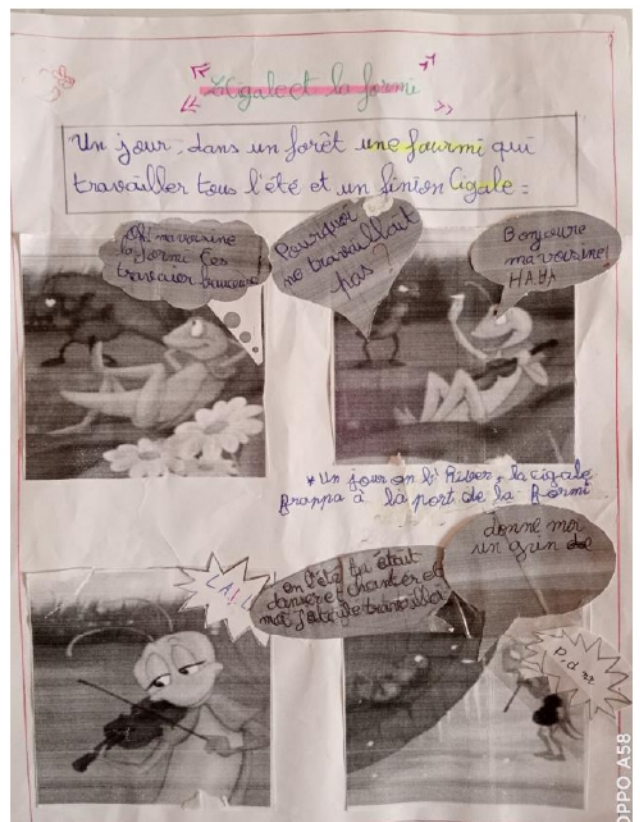 La cigale et la formi
Un jour, dans un forêt une fourmi qui
travailler tous l'été et un Cigale =
Oh! ma voisine
la formi
Pourquoi
ne travaillait
pas ?
Bonjoure
ma voisine!
HAHA
*Un jour on l'Hiver, la cigale
frappa à la port de la Formi
donne moi
un grin de
on l'été tu était
danser et chanter et
moi travailla
LA!L